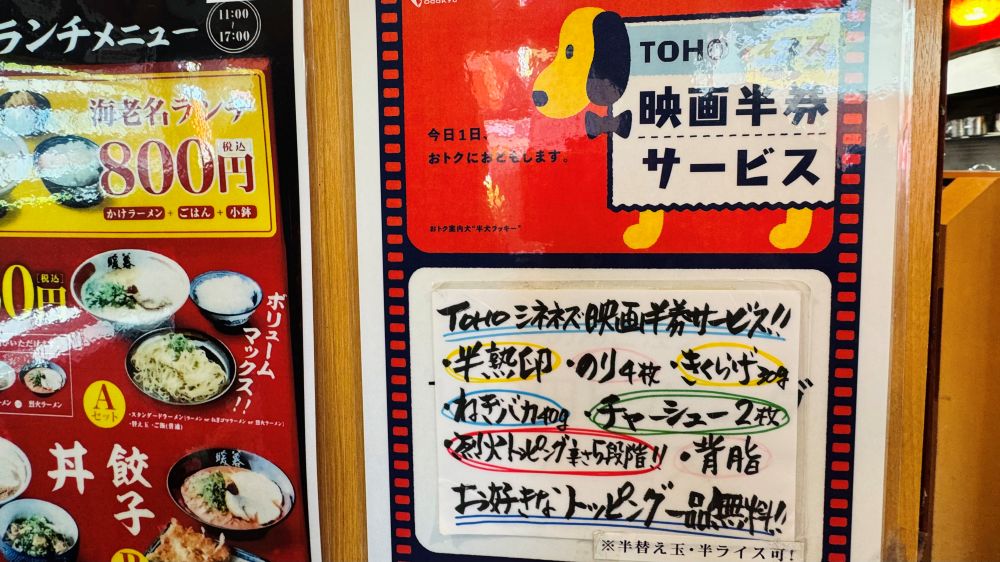 ランチメニュー
11:00
17:00
海老名ランチ
800円 税込
かけラーメン + ごはん + 小鉢
0円 [税込]
暖暮
ボリューム
マックス!!
Aセット
・スタンダードラーメン
・替え玉・ご飯(普通)
丼
餃子
暖暮
TOHOシネマズ
映画半券
サービス
今日1日、
おトクにおともします。
おトク案内犬"半犬ラッキー"
TOHOシネネズ映画半券サービス!!
・半熟印 ・のり4枚 ・きくらげ30g
・ねぎバカ40g ・チャーシュー2枚
・烈火トッピング辛さ5段階!! ・背脂
お好きなトッピング一品無料!!
※半替え玉・半ライス可!